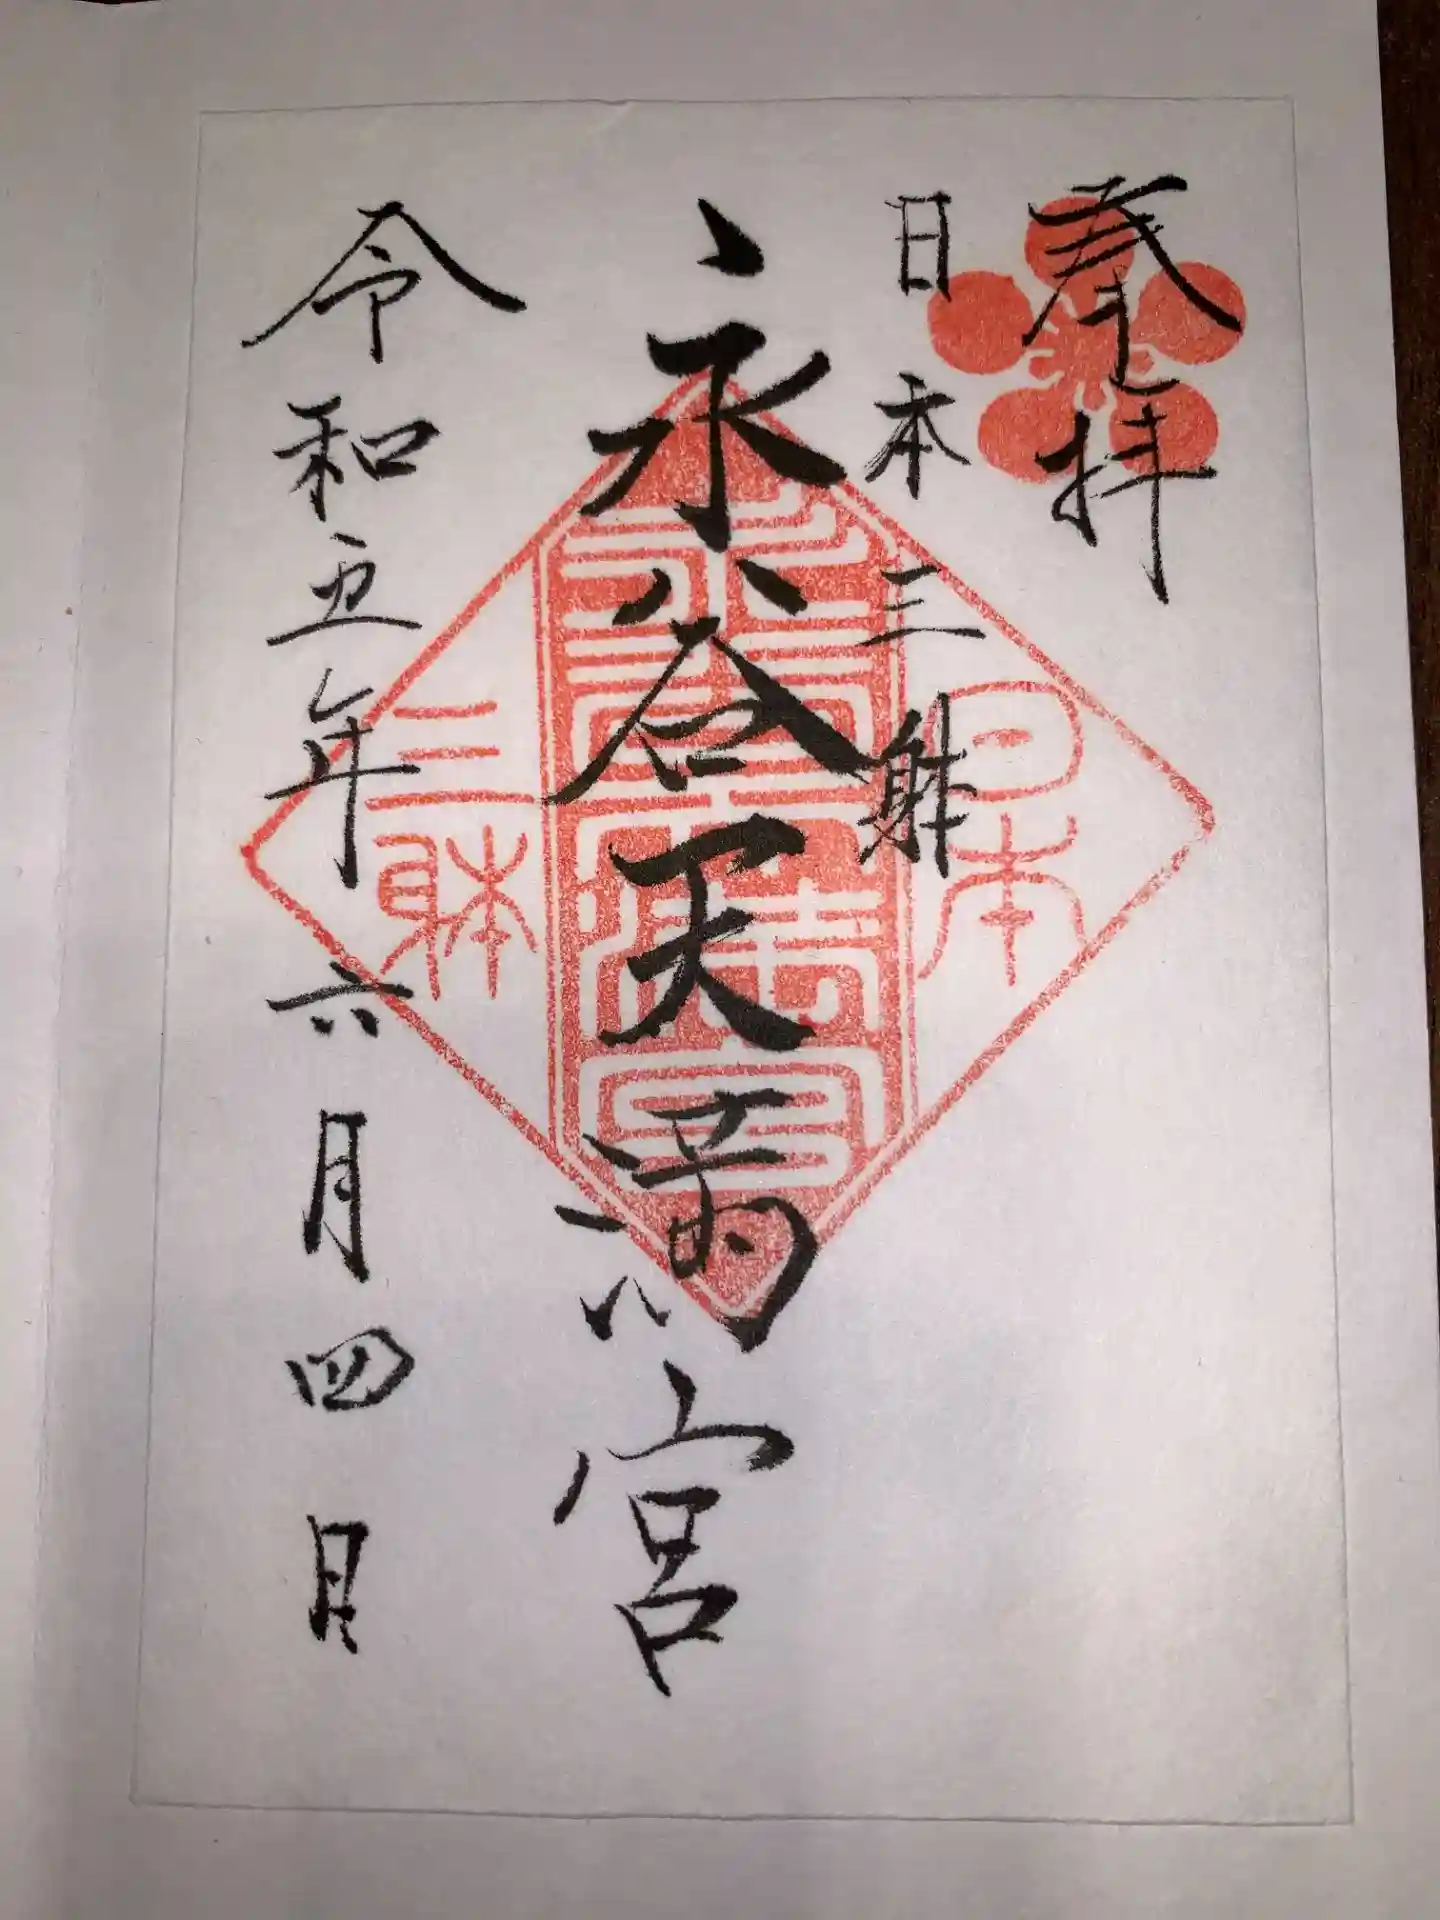 奉拝
日本三躰
永谷天満宮
令和五年六月四日
日本
三躰
永谷天満宮